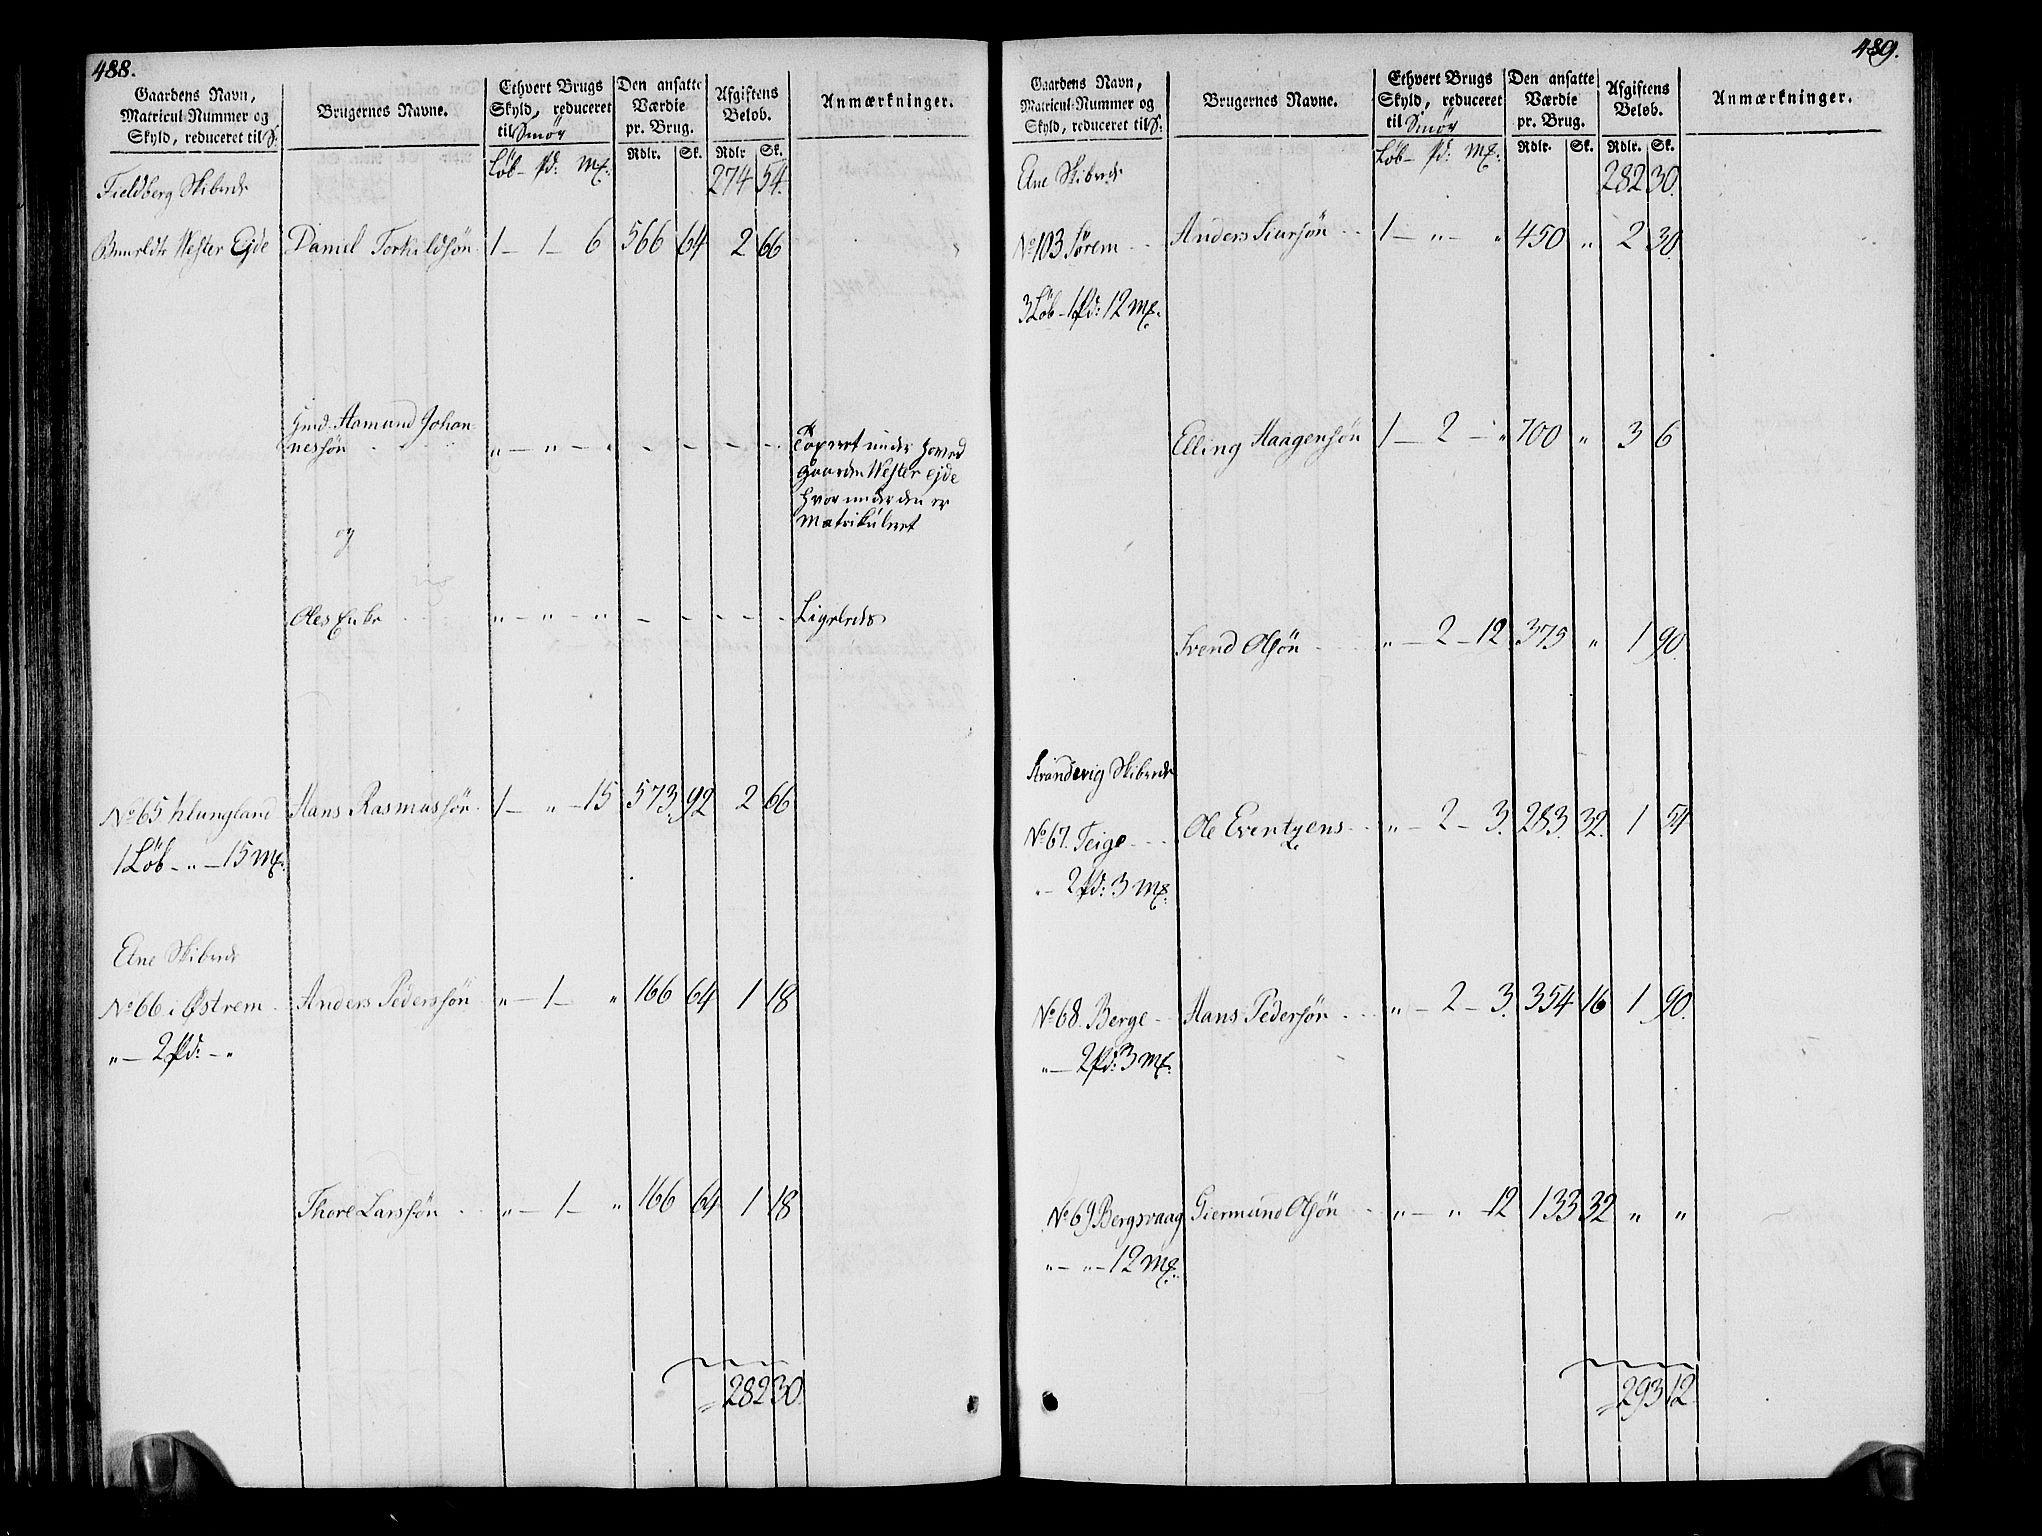 488.
Gaardens Navn, Matricul-Nummer og Skyld, reduceret til S:
Brugernes Navne.
Ethvert Brugs Skyld, reduceret til Smör
Den ansatte Værdie pr. Brug.
Afgiftens Beløb.
Anmærkninger.
Löb - Pd: Mk: Rdlr. Sk. Rdlr Sk.
Fieldberg Skibrede 274 54.
Wester Ejde Daniel Torkildsön 1 - 1 - 6 566 64 2 66
Hmd. Aamund Johan-
nessön „ - „ - „ - - - - Taxeret under Hoved
Gaarden Wester Ejde
hvorunder den er
Matrikuleret
og
Oles Enke „ - „ - „ - - - - Ligeledes
No 65 Klungland Hans Rasmussön 1 - „ - 15 573. 92 2 66
1 Löb - „ - 15 Mk:
Etne Skibrede
No 66 Østrem Anders Pederssön „ - 1 - „ 166 64 1 18
„ - 2 Pd: - „
Thore Larssön „ - 1 - „ 166 64 1 18
282 30.
489.
Gaardens Navn, Matricul-Nummer og Skyld, reduceret til S:
Brugernes Navne.
Ethvert Brugs Skyld, reduceret til Smör
Den ansatte Værdie pr. Brug.
Afgiftens Beløb.
Anmærkninger.
Löb - Pd: Mk: Rdlr. Sk. Rdlr. Sk.
Etne Skibrede 282 30.
No 103 Sörem Anders Siursön 1 - „ - „ 450 „ 2 30.
3 Löb - 1 Pd: 12 Mk.
Elling Haagensön 1 - 2 - „ 700 „ 3 6
Svend Olsön „ - 2 - 12 375 „ 1 90.
Strandevig Skibrede
No 67. Teige Ole Eventzens „ - 2 - 3. 283. 32. 1 54
„ - 2 Pd: 3 Mk.
No 68. Berge Hans Pedersön „ - 2 - 3. 354 16 1 90.
„ - 2 Pd: 3 Mk.
No 69 Bergsvaag Giermund Olsön „ - „ 12 133 32 „ „
„ - „ - 12 Mk.
293 12.